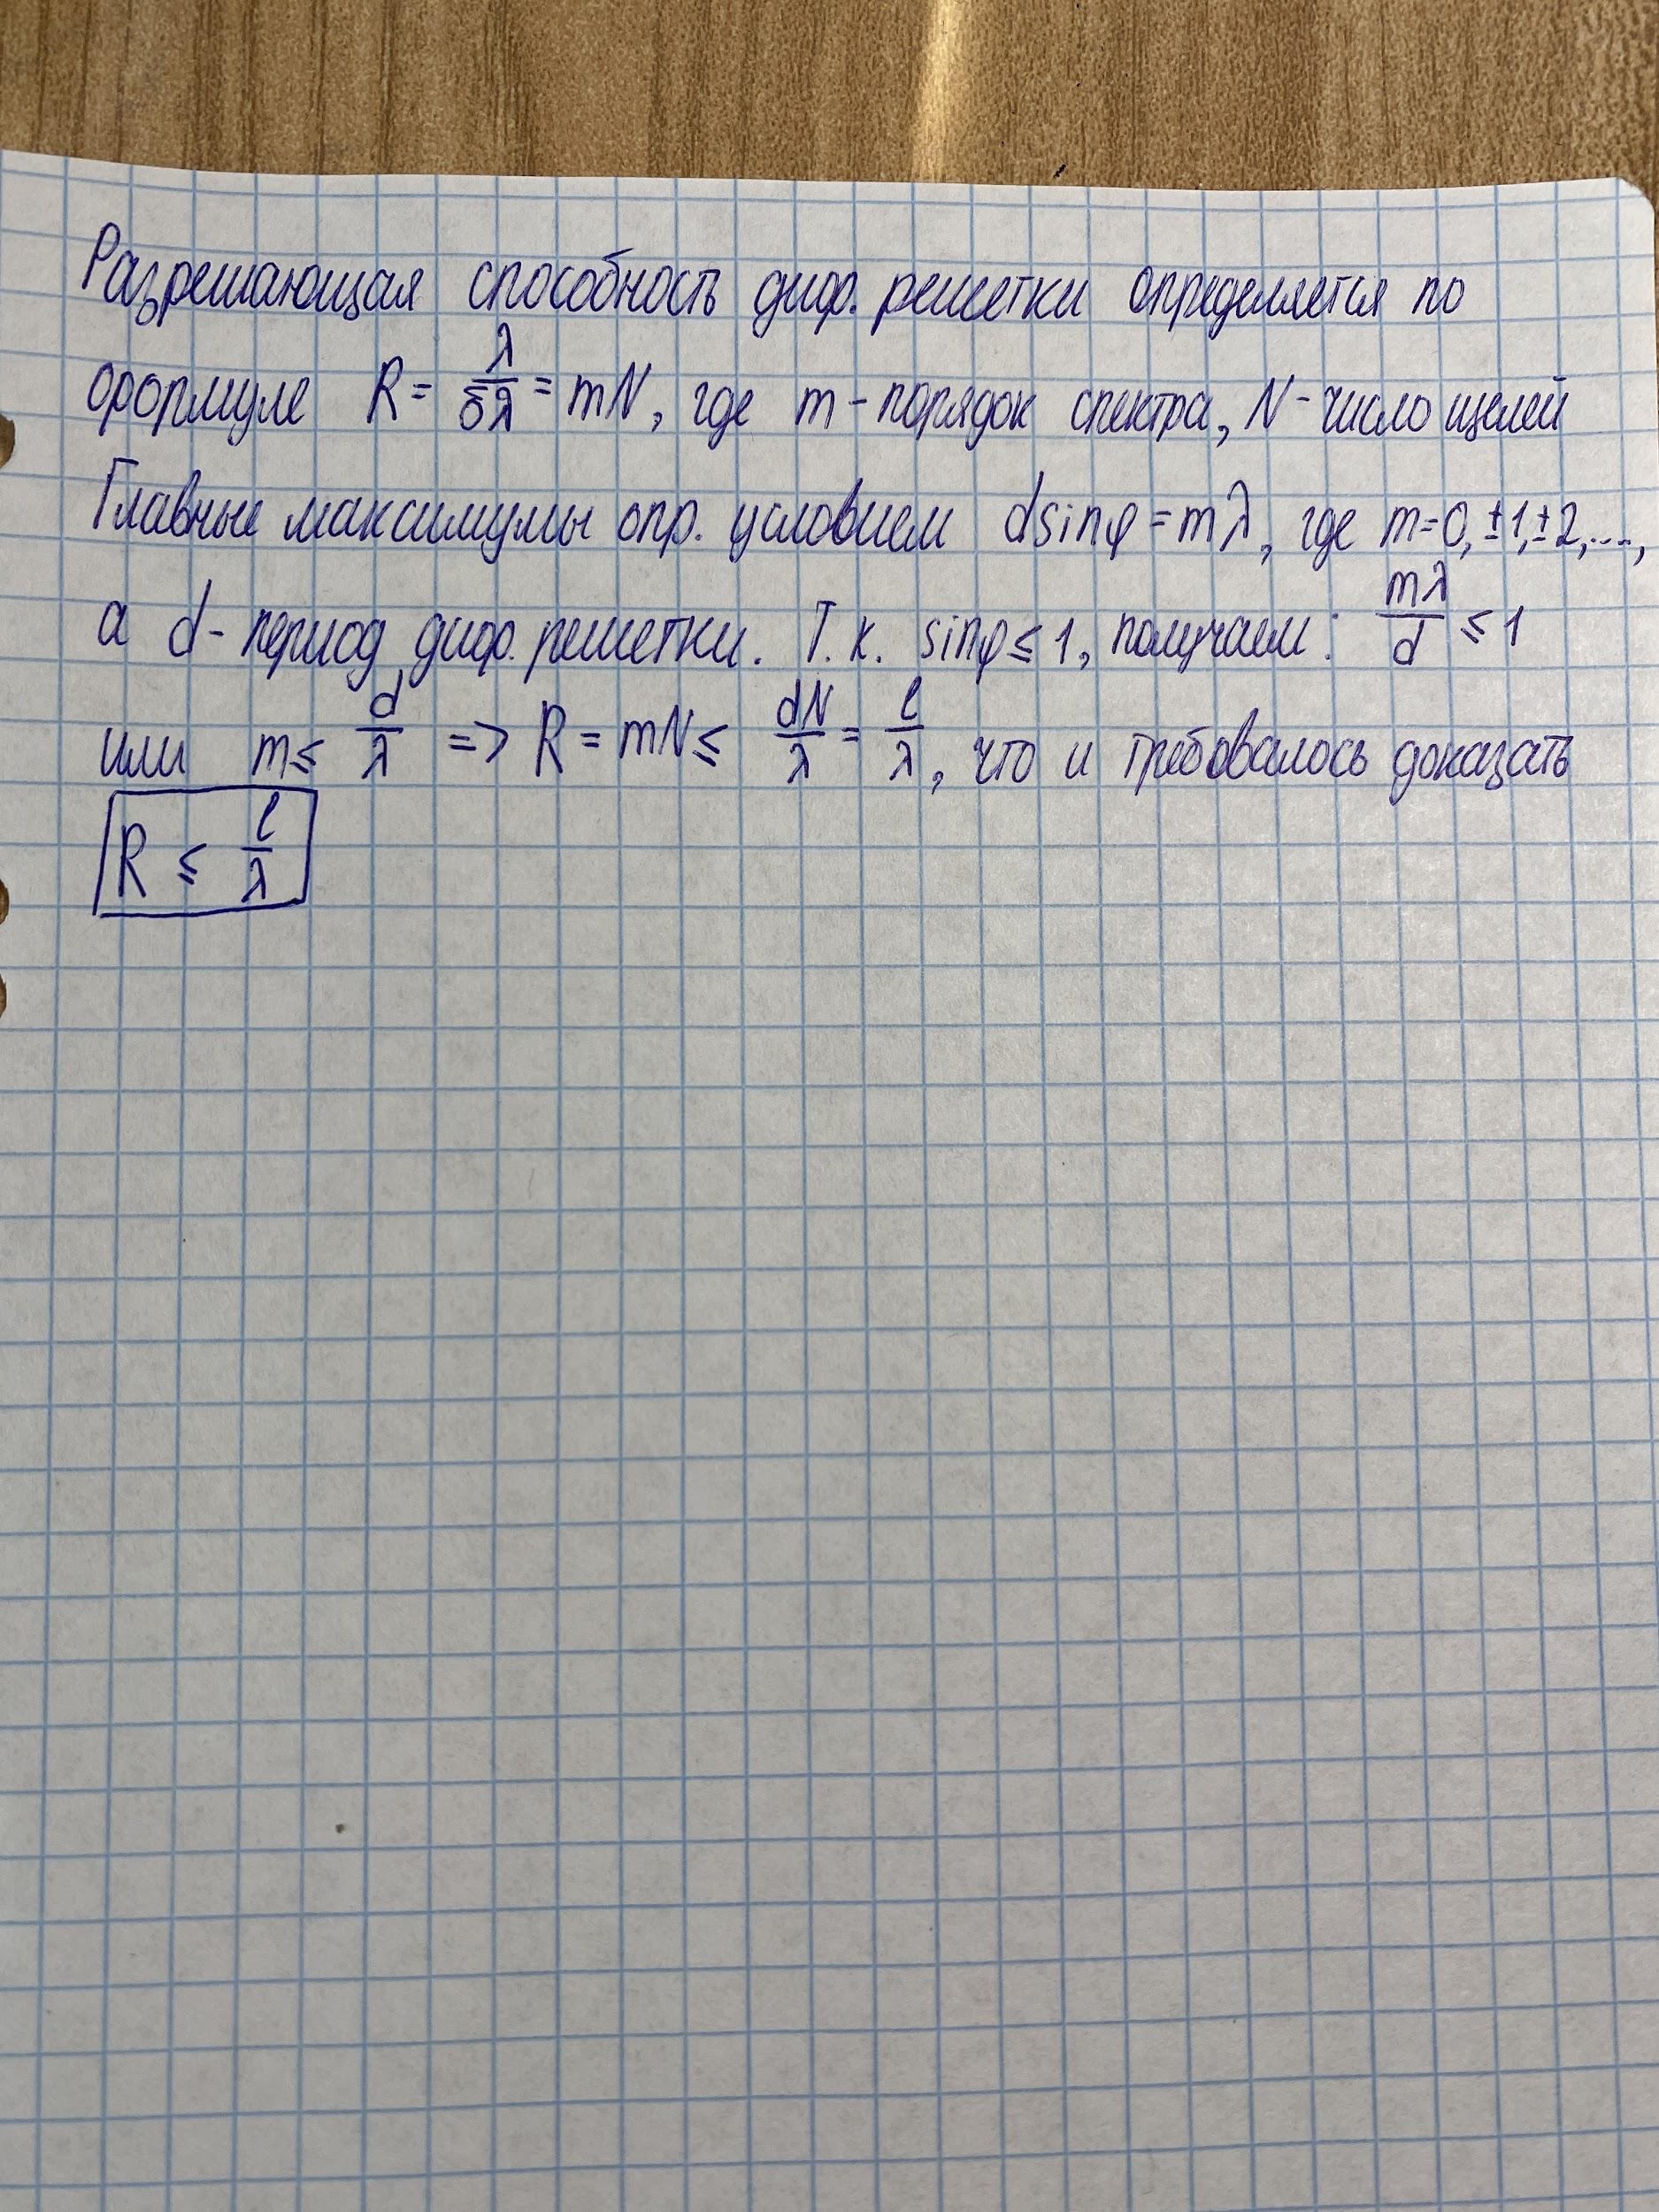 Разрешающая способность диф. решетки определяется по
формуле R = λ/δλ = mN, где m - порядок спектра, N - число щелей
Главные максимумы опр. условием dsinφ = mλ, где m=0,±1,±2,...,
а d - период диф. решетки. Т.к. sinφ ≤ 1, получаем: mλ/d ≤ 1
или m ≤ d/λ => R = mN ≤ dN/λ = l/λ, что и требовалось доказать
R ≤ l/λ